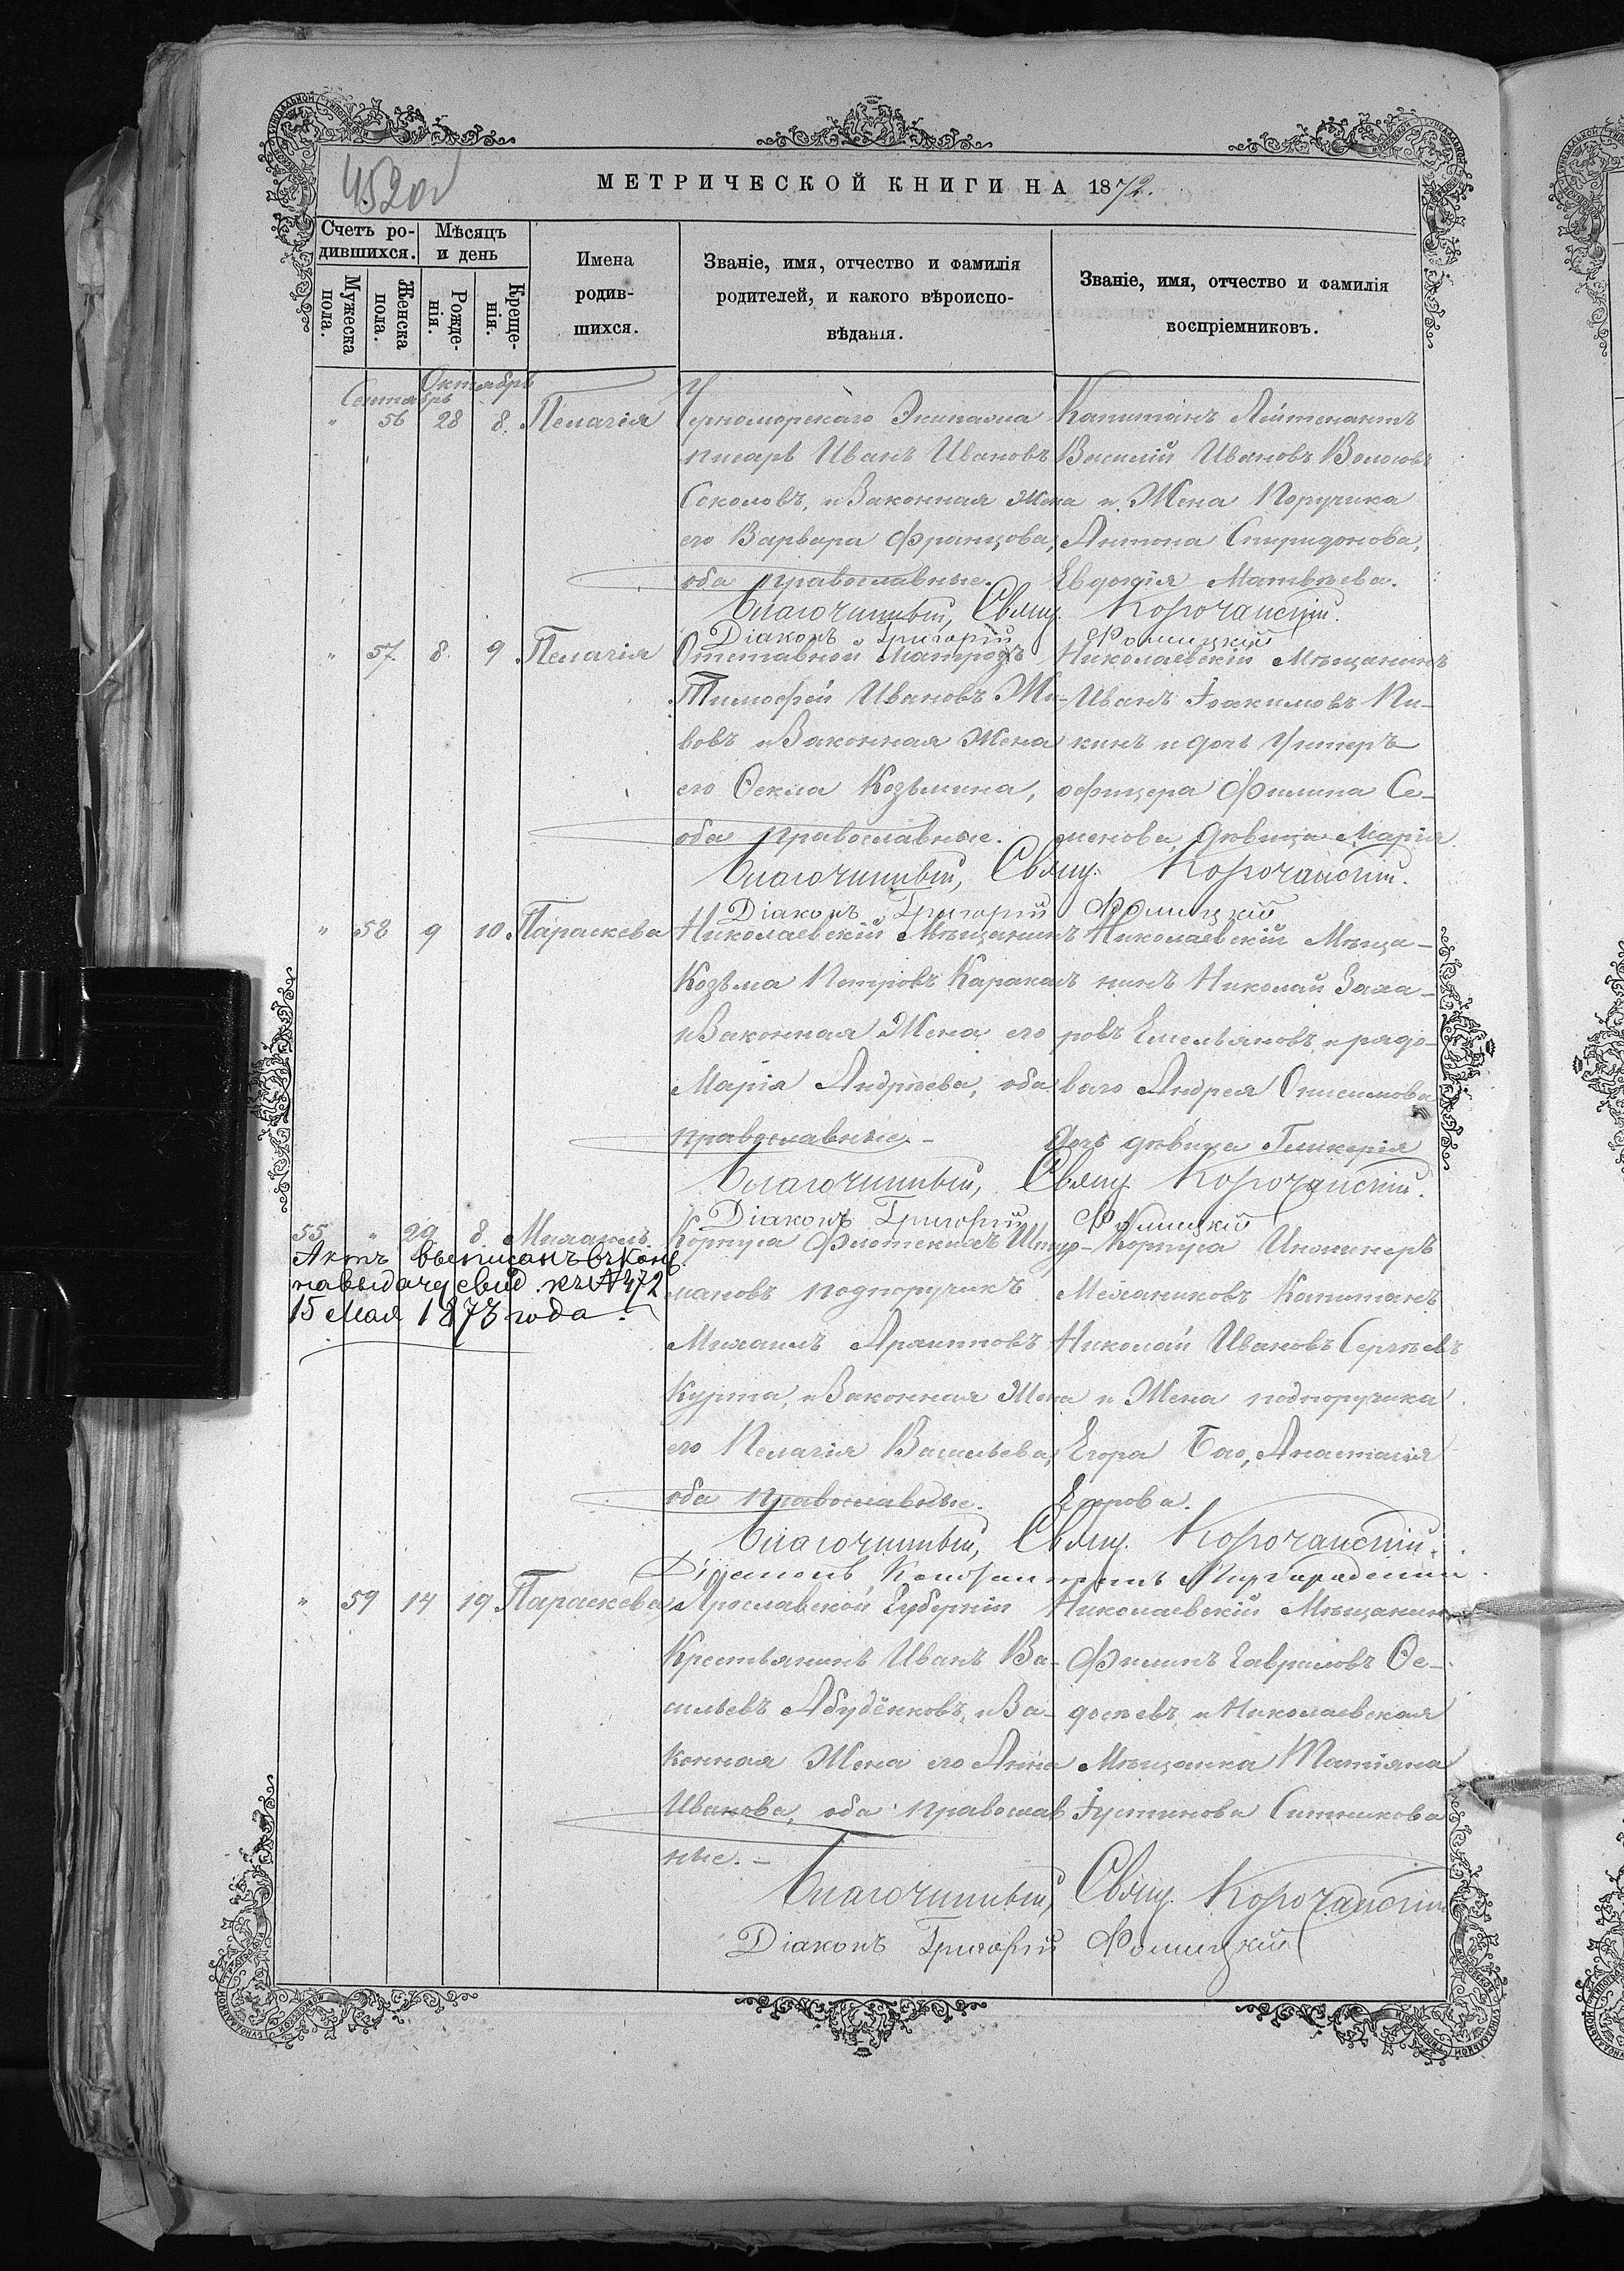 452 об
МЕТРИЧЕСКОЙ КНИГИ НА 1872.
Счетъ родившихся.
Мѣсяцъ и день
Имена родившихся.
Званіе, имя, отчество и фамилія родителей, и какого вѣроисповѣданія.
Званіе, имя, отчество и фамилія воспріемниковъ.
Мужеска пола.
Женска пола.
Рожденія.
Крещенія.
Сентябрь Октябрь
" 56 28 8. Пелагія
Черноморскаго Экипажа
писарь Иванъ Ивановъ
Соколовъ, и Законная Жена
его Варвара Францова,
оба православные.
Капитанъ Лейтенантъ
Василій Ивановъ
и Жена Поручика
Антона Спиридонова,
Евдокія Матвѣева.
Благочинный, Свящ. Корочанскій.
Діаконъ Григорій Фомицкій
" 57. 8. 9 Пелагія
Отставной Матрозъ
Тимофей Ивановъ Жи-
вовъ и Законная Жена
его Ѳекла Козьмина,
оба православные.
Николаевскій Мѣщанинъ
Иванъ Іоакимовъ Пи-
кинъ и дочь Унтеръ
офицера Филипа Се-
менова, дѣвица Марія
Благочинный, Свящ. Корочанскій.
Діаконъ Григорій Фомицкій
" 58 9 10 Параскева
Николаевскій Мѣщанинъ
Козьма Петровъ
и Законная Жена его
Марія Андрѣева, оба
православные. –
Николаевскій Мѣща-
нинъ Николай Заха-
ровъ Емельяновъ и рядо-
ваго Андрея Онисимова
дочь дѣвица Гликерія
Благочинный, Свящ. Корочанскій.
Діаконъ Григорій Фомицкій
55 " 29 8. Михаилъ.
Актъ выписанъ въ Конс.
на выдачу свид. къ № 472
15 Мая 1873 года.
Корпуса Флотскихъ Штур-
мановъ подпоручикъ
Михаилъ
Курта, и Законная Жена
его Пелагія Васильева,
оба православные.
Корпуса Инженеръ
Механиковъ Капитанъ
Николай Ивановъ Сергѣевъ
и Жена подпоручика
Егора Бао, Анастасія
Егорова.
Благочинный, Свящ. Корочанскій.
Діаконъ Константинъ
" 59 14 19 Параскева
Ярославской Губерніи
Крестьянинъ Иванъ Ва-
сильевъ Абудёнковъ, и За-
конная Жена его Анна
Иванова, оба православ
ные. –
Николаевскій Мѣщанинъ
Филипъ Гавриловъ Ѳе-
досѣевъ, и Николаевская
Мѣщанка Татіяна
Іустинова Ситникова
Благочинный, Свящ. Корочанскій
Діаконъ Григорій Фомицкій